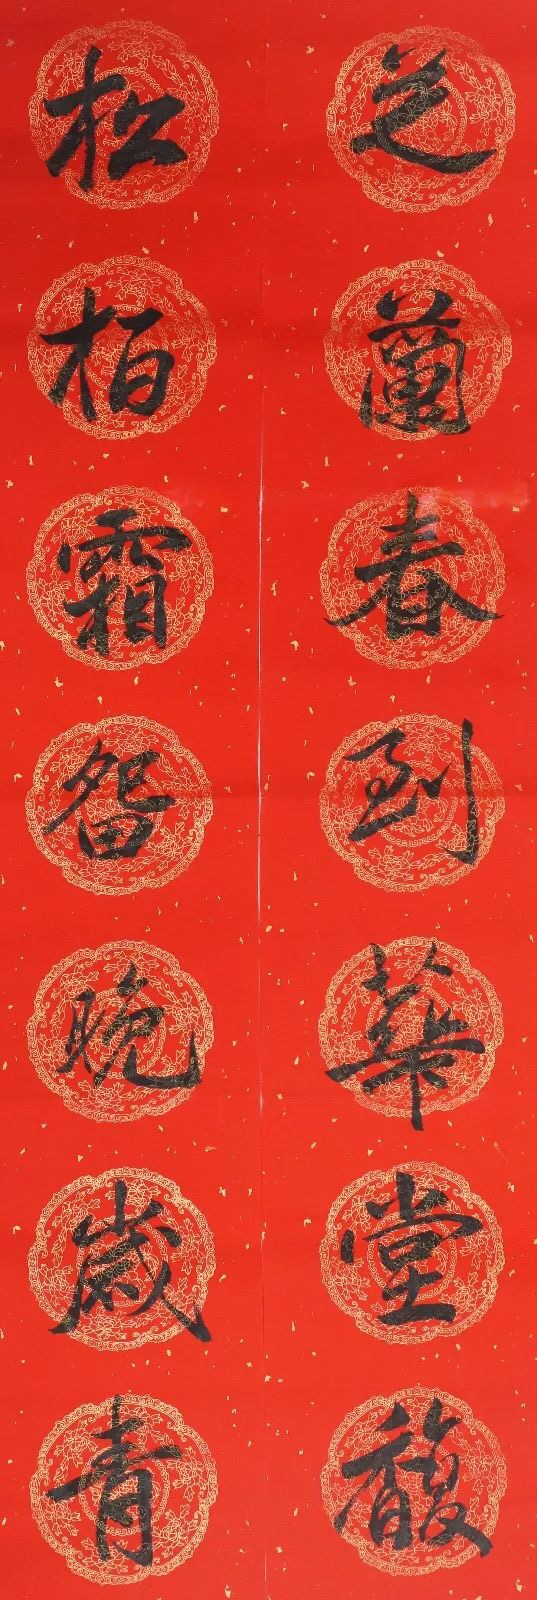 芝蘭春到華堂馥
松柏霜留晚歲青